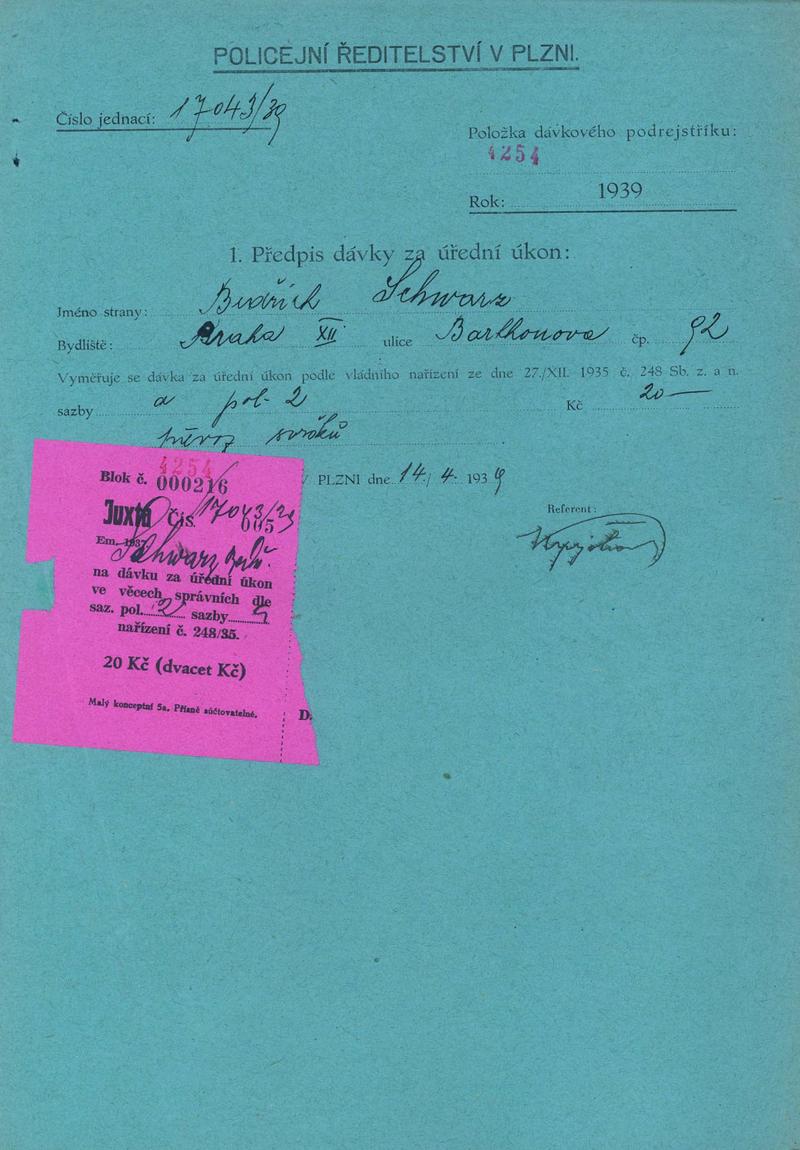 POLICEJNÍ ŘEDITELSTVÍ V PLZNI.
Číslo jednací: 17043/39
Položka dávkového podrejstříku:
4254
Rok: 1939
1. Předpis dávky za úřední úkon:
Jméno strany: Bedřich Schwarz
Bydliště: Praha XII ulice Barthonova čp. 92
Vyměřuje se dávka za úřední úkon podle vládního nařízení ze dne 27./XII. 1935 č. 248 Sb. z. a n.
sazby a pol. 2 Kč 20—
převoz svršků
V PLZNI dne 14./4. 1939
Referent:
4254
Blok č. 000216
Juxta Čís. 17043/39
005
Em. 1937
Schwarz Bedř.
na dávku za úřední úkon
ve věcech správních dle
saz. pol. 2 sazby
nařízení č. 248/35.
20 Kč (dvacet Kč)
Malý konceptní 5a. Přísně zúčtovatelné.
D